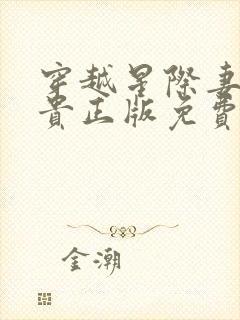 穿越星际妻
贵正版免費
金潮